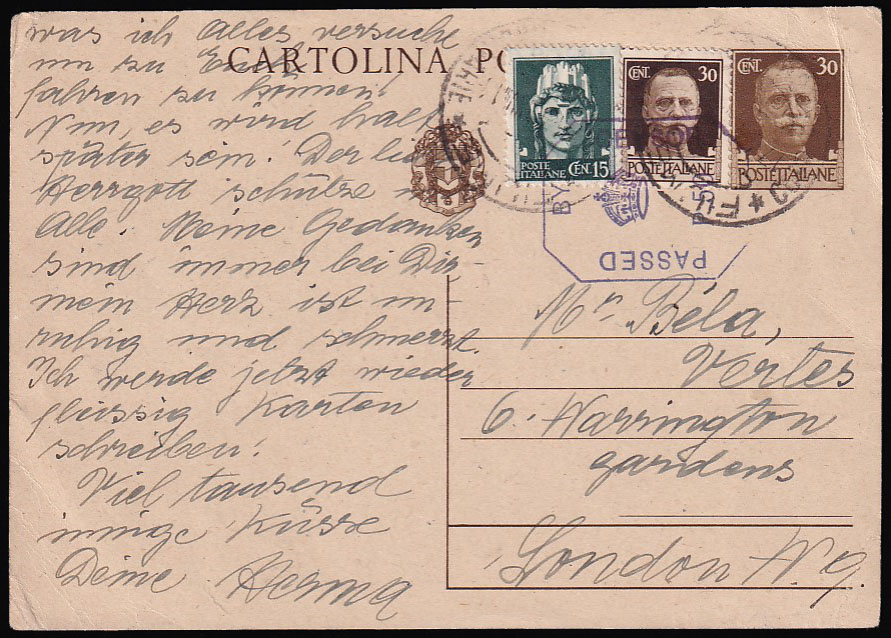 was ich Alles versuche
um zu Euch
fahren zu können!
Nun, es wird halt
später sein! Der liebe
Herrgott schütze
Alle. Meine Gedanken
sind immer bei Dir-
mein Herz ist un-
ruhig und schmerzt.
Ich werde jetzt wieder
fleissig Karten
schreiben!
Viel tausend
innige Küsse
Deine Herma
CARTOLINA PO
POSTE
ITALIANE CEN. 15
CENT. 30
POSTE ITALIANE
CENT. 30
POSTE ITALIANE
PASSED
BY
Mr. Béla,
Vertes
6. Warrington
gardens
London W. 9.